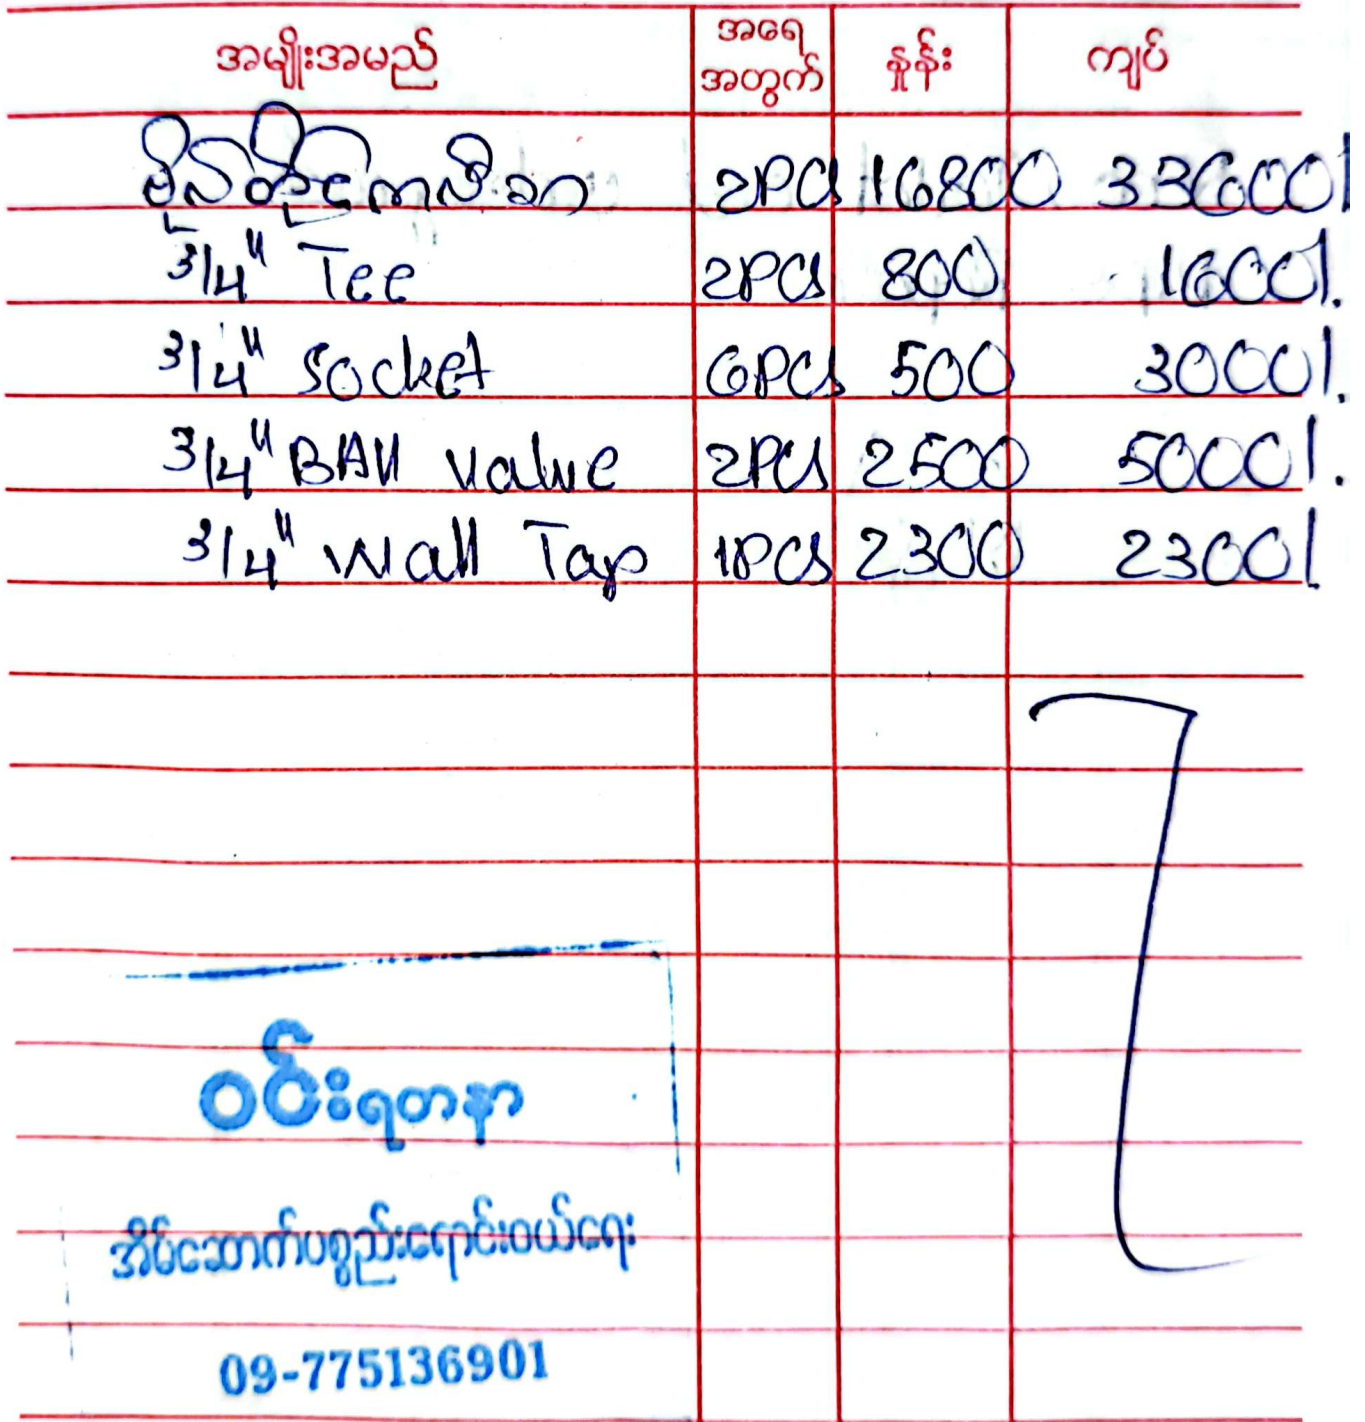 အမျိုးအမည် အရေအတွက် နှုန်း ကျပ်
ဗိုလ်တိုင်ကာလီဆာ 2PCS 16800 33600/
3/4" Tee 2PCS 800 1600/.
3/4" Socket 6PCS 500 3000/.
3/4" BAll Valve 2PCS 2500 5000/.
3/4" Wall Tap 1PCS 2300 2300/
ဝင်းရတနာ
အိမ်ဆောက်ပစ္စည်းရောင်းဝယ်ရေး
09-775136901